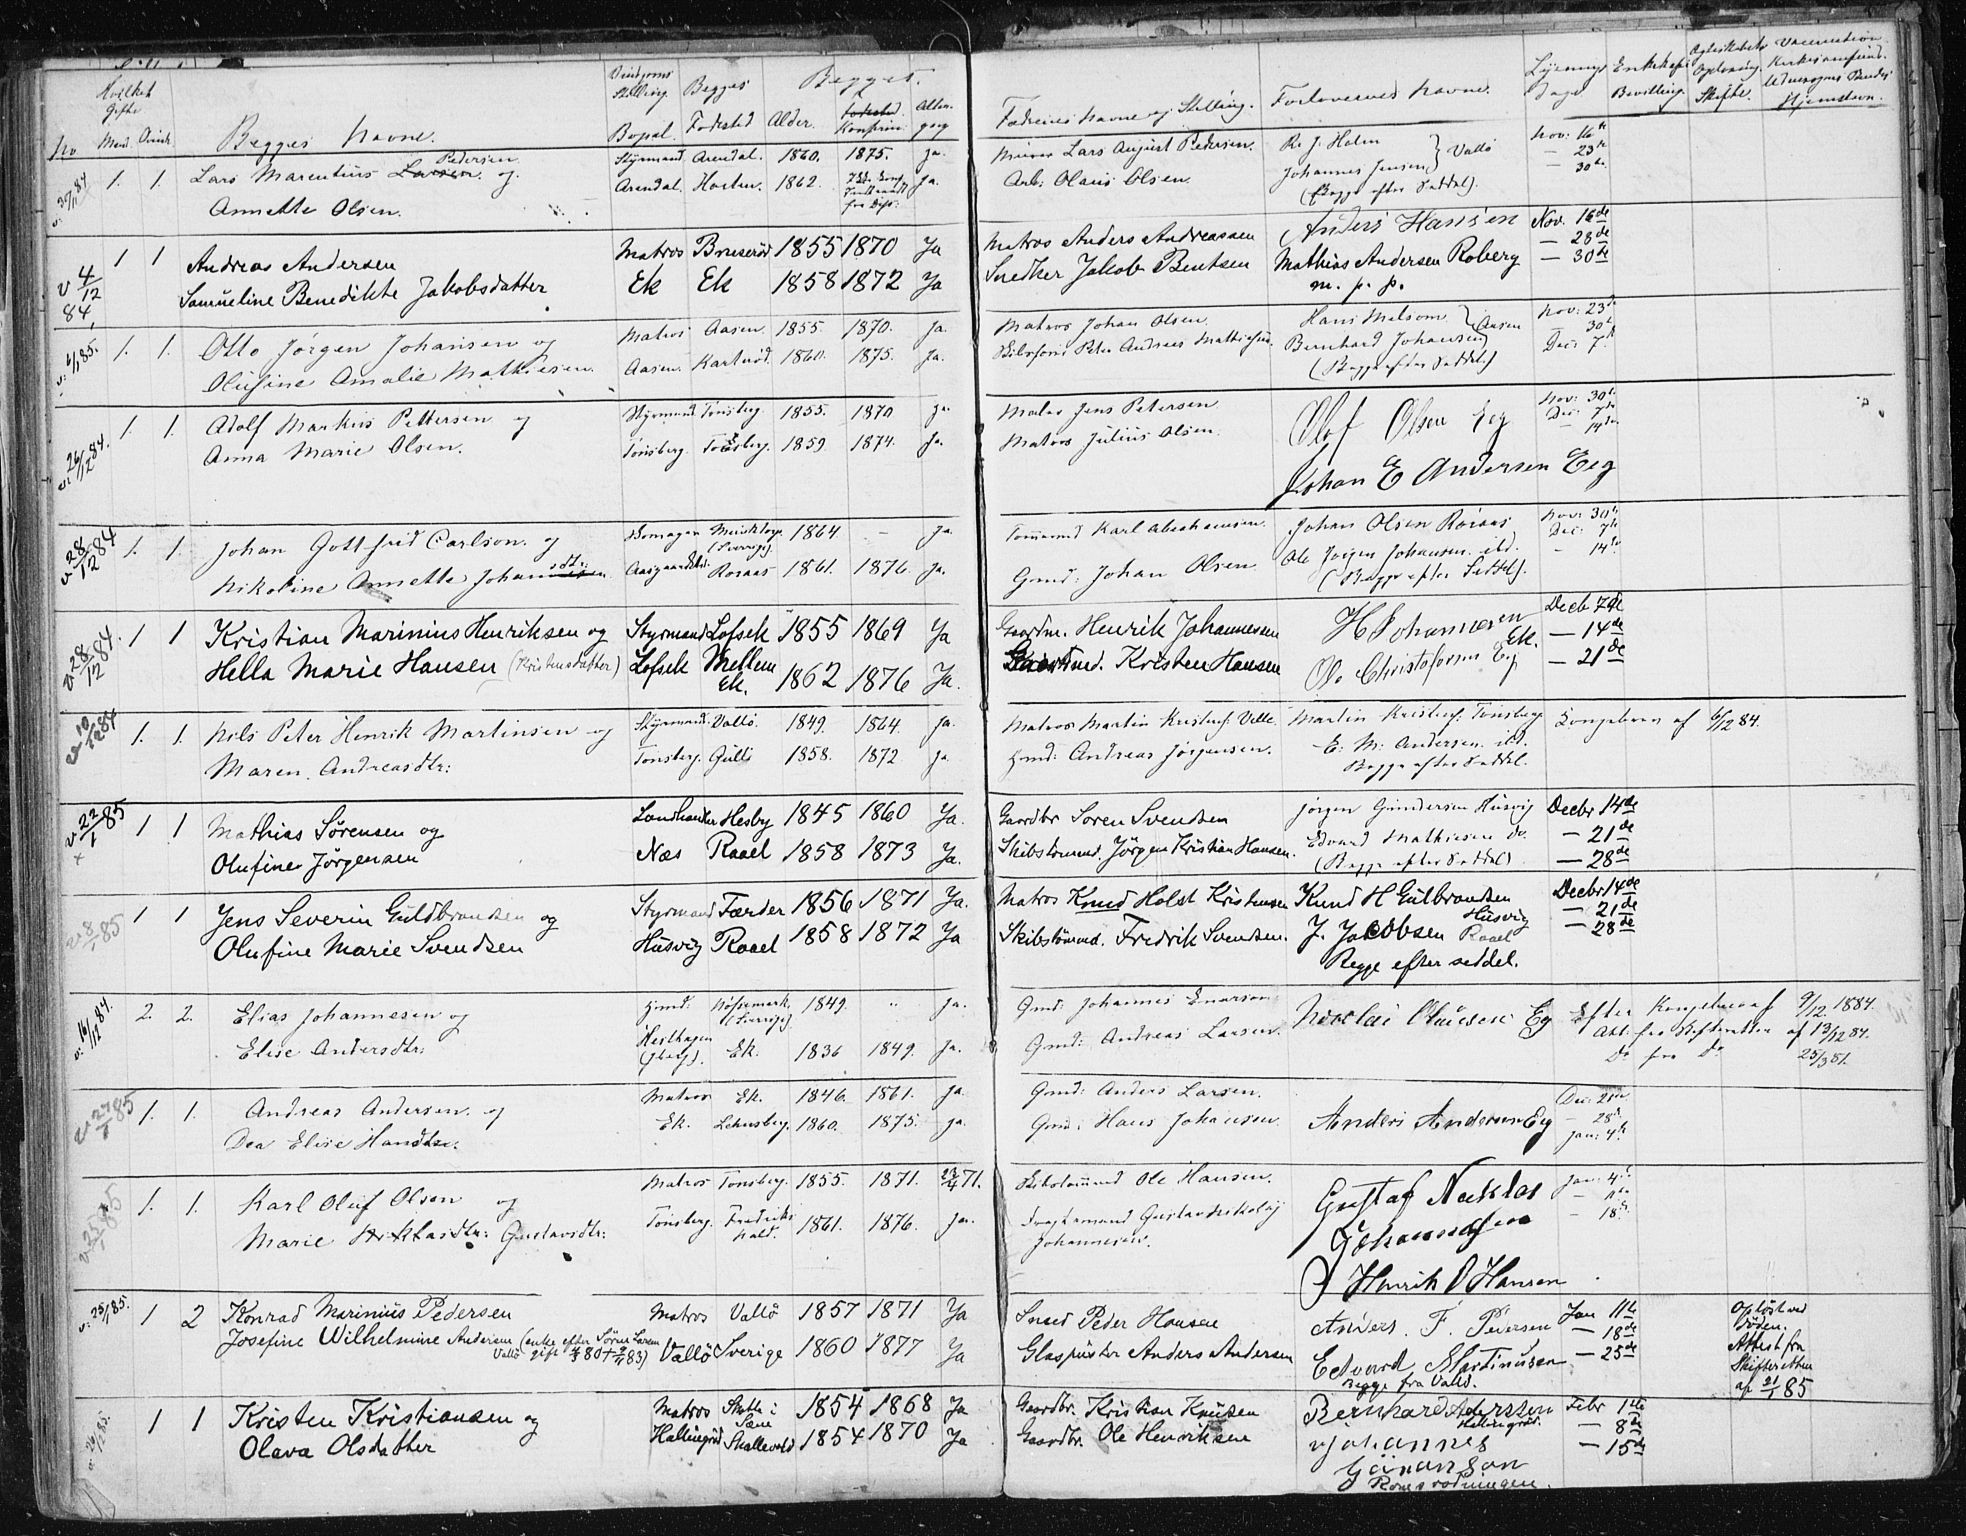 Hvilket Gifte
No Mand Qvinde Begges Navne. Brudgoms Stilling. Bopæl. Begges Fødested Begges Alder. Konfirm. Altergang Fædrenes Navne og Stilling. Forlovernes Navne. Lysnings Dage Bevilling. Skifte. Hjemstavn.
v: 30/11 84 1. 1. Lars Marentius Larsen Pedersen og Styrmand Arendal. 1860. 1875. ja. Lars August Pedersen. R. J. Holm Vallö Nov: 16de
Annette Olsen. Arendal. Horten. 1862. ja. Arb: Olaus Olsen Johannes Jensen — 23de
(Begge efter Seddel). 30te
v 4/12 84, 1 1 Andreas Andersen Matros Bruserød 1855 1870 Ja Matros Anders Andreassen Anders Hansen Nov. 16de
Samueline Benedikte Jakobsdatter Ek Ek 1858 1872 Ja Snedker Jakob Bentsen Mathias Andersen Roberg — 23de
m. p. p. — 30de
v: 4/1 85. 1. 1. Otto Jörgen Johansen og Matros Aasen. 1855. 1870. ja. Matros Johan Olsen. Hans Melsom Aasen Nov: 23de
Olufine Amalie Mathiesen. Aasen. 1860. 1875. ja. Peter Andreas Mathiesen. Bernhard Johansen 30te
(Begge efter Seddel) Dec: 7de
v: 26/12 84. 1. 1. Adolf Markus Pettersen og Styrmand Tönsberg. 1855. 1870 ja. Jens Petersen Olof Olsen Eeg Nov: 30te
Anna Marie Olsen. Tönsberg. Tönsberg. 1859. 1874. ja. Matros Julius Olsen. Johan E Andersen Eeg Dec: 7de
14de
v 28/12 84 1. 1. Johan Gottfrid Carlson. og (Sverrige). 1864 — ja. Tömmermd Karl Abrahamsen. Johan Olsen Roraas Nov: 30te
Nikoline Annette Johannesen sdtr: Roraas 1861. 1876. ja. Gmd: Johan Olsen Ole Jörgen Johansen. ibd. Dec: 7de
(Begge efter Seddel). — 14de
v 28/12 84. 1 1 Kristian Marinius Henriksen og Styrmand Lofsek 1855 1869 Ja Gaardm. Henrik Johannesen H Johannesen Ek. Decb 7de
Hella Marie Hansen (Kristensdatter) Lofsek Mellem Ek. 1862 1876 Ja. Kristen Hansen Ole Christofersen Eeg — 14de
— 21de
v 10/12 84 1. 1. Nils Peter Henrik Martinsen og Styrmand. Vallö. 1849. 1864. ja. Matros Martin Kristens. Martin Kristens. Tönsberg. Kongebrev af 6/12 84.
Maren Andreasdtr: Tönsberg. Gulli 1858. 1872 ja. Gmd: Andreas Jörgensen. E. M. Andersen. ibd.
Begge efter Seddel.
v 22/1 85 1 1 Mathias Sörensen og Landhandler Hesby 1845 1860 Ja. Gaardbr Sören Svendsen Jörgen Gundersen Husvig Decbr 14de
Olufine Jörgensen Næs Raael 1858 1873 Ja. Skibstömmd. Jörgen Kristian Hansen. Edvard Mathiesen do — 21de
(Begge efter Seddel) — 28de
v 8/1 85 1 1 Jens Severin Guldbrandsen og Styrmand Færder 1856 1871 Ja. Matros Knud Holst Kristensen Knud H Gulbrandsen Husvig Decbr 14de
Olufine Marie Svendsen Husvig Raael 1858 1872 Ja Skibstömmd. Fredrik Svendsen. J. Jacobsen Raael — 21de
Begge efter seddel. — 28de
v: 16/12 84. 2. 2. Elias Johannesen og Gmd: (Sverrige). 1849. " ja. Gmd: Johannes Enarson Nicolai Olausen Eg Efter Kongebrev af 9/12 1884.
Elise Andersdtr: Ek. 1836 1849. ja. Gmd: Andreas Larsen. Att: fra Skifteretten af 13/12 84.
Do fra Do 25/3 81.
v 27/1 85 1. 1. Andreas Andersen. og Matros Ek. 1846. 1861. ja Gmd: Anders Larsen. Anders Andersen Eg Dec: 21de
Dea Elise Hansdtr. Ek. Lensberg. 1860. 1875. ja. Gmd: Hans Johansen. — 28de
Jan: 4de
v 25/1 85 1. 1. Karl Oluf Olsen og Matros Tönsberg. 1855. 1871. 71. Skibstömmermd Ole Hansen. Gustaf Niklas Johannesen Jan: 4de
Marie Niklasdtr: Gustavsdtr: Tönsberg. Fredrikshald. 1861. 1876. ja. Gustav Nikolaj Johannesen. Henrik O Hansen — 11te
— 18de
v: 25/1 85. 1 2 Konrad Marinius Pedersen Matros Vallö 1857 1871 Ja Peder Hansen Anders. F. Pedersen Jan 11te Oplöst ved Döden.
Josefine Wilhelmine Andersen (enke efter Sören Larsen Vallö gift 80 83) Vallö Sverige 1860 1877 Ja Glaspuster Anders Andersen Edvard Martinusen — 18de Attest fra Skifteretten
Begge fra Vallö. — 25de af 21/1 85
v: 26/2 85. 1 1 Kristen Kristiansen og Matros Skatte i Sæm 1854 1868 Ja Gaardbr. Kristian Knudsen Bernhard Andersen Hallingrød. Febr 1ste
Olava Olsdatter Hallingröd Skallevold 1854 1870 Ja Gaardbr. Ole Henriksen Johannes — 8de
Göranson — 15de